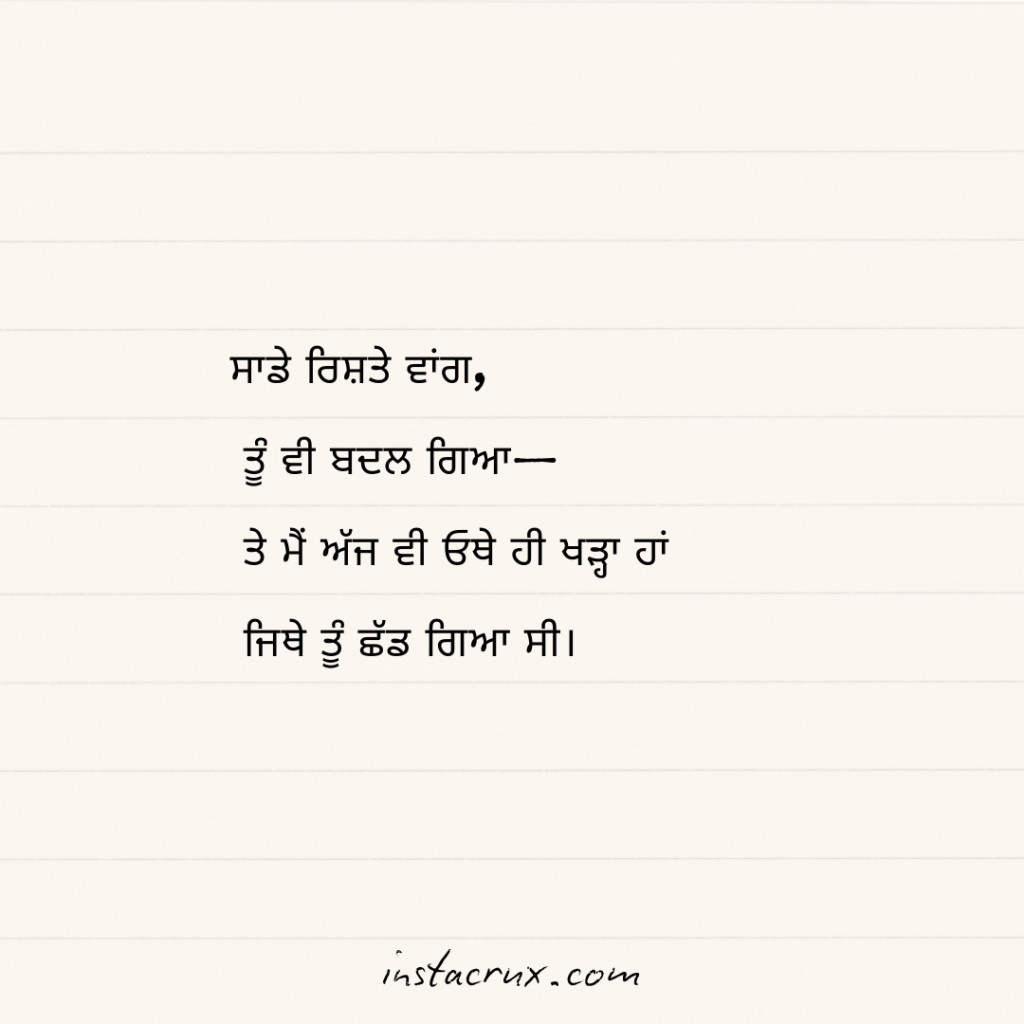 ਸਾਡੇ ਰਿਸ਼ਤੇ ਵਾਂਗ,
ਤੂੰ ਵੀ ਬਦਲ ਗਿਆ—
ਤੇ ਮੈਂ ਅੱਜ ਵੀ ਓਥੇ ਹੀ ਖੜ੍ਹਾ ਹਾਂ
ਜਿਥੇ ਤੂੰ ਛੱਡ ਗਿਆ ਸੀ।
instacrux.com